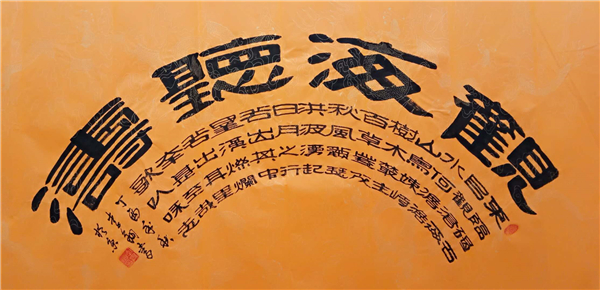 觀海聽濤
東臨碣石
㠯觀滄海
水何澹澹
山島竦峙
樹木叢生
百草豐茂
秋風蕭瑟
洪波湧起
日月之行
若出其中
星漢燦爛
若出其里
幸甚至哉
歌㠯咏志
丁酉年夏
書
於京